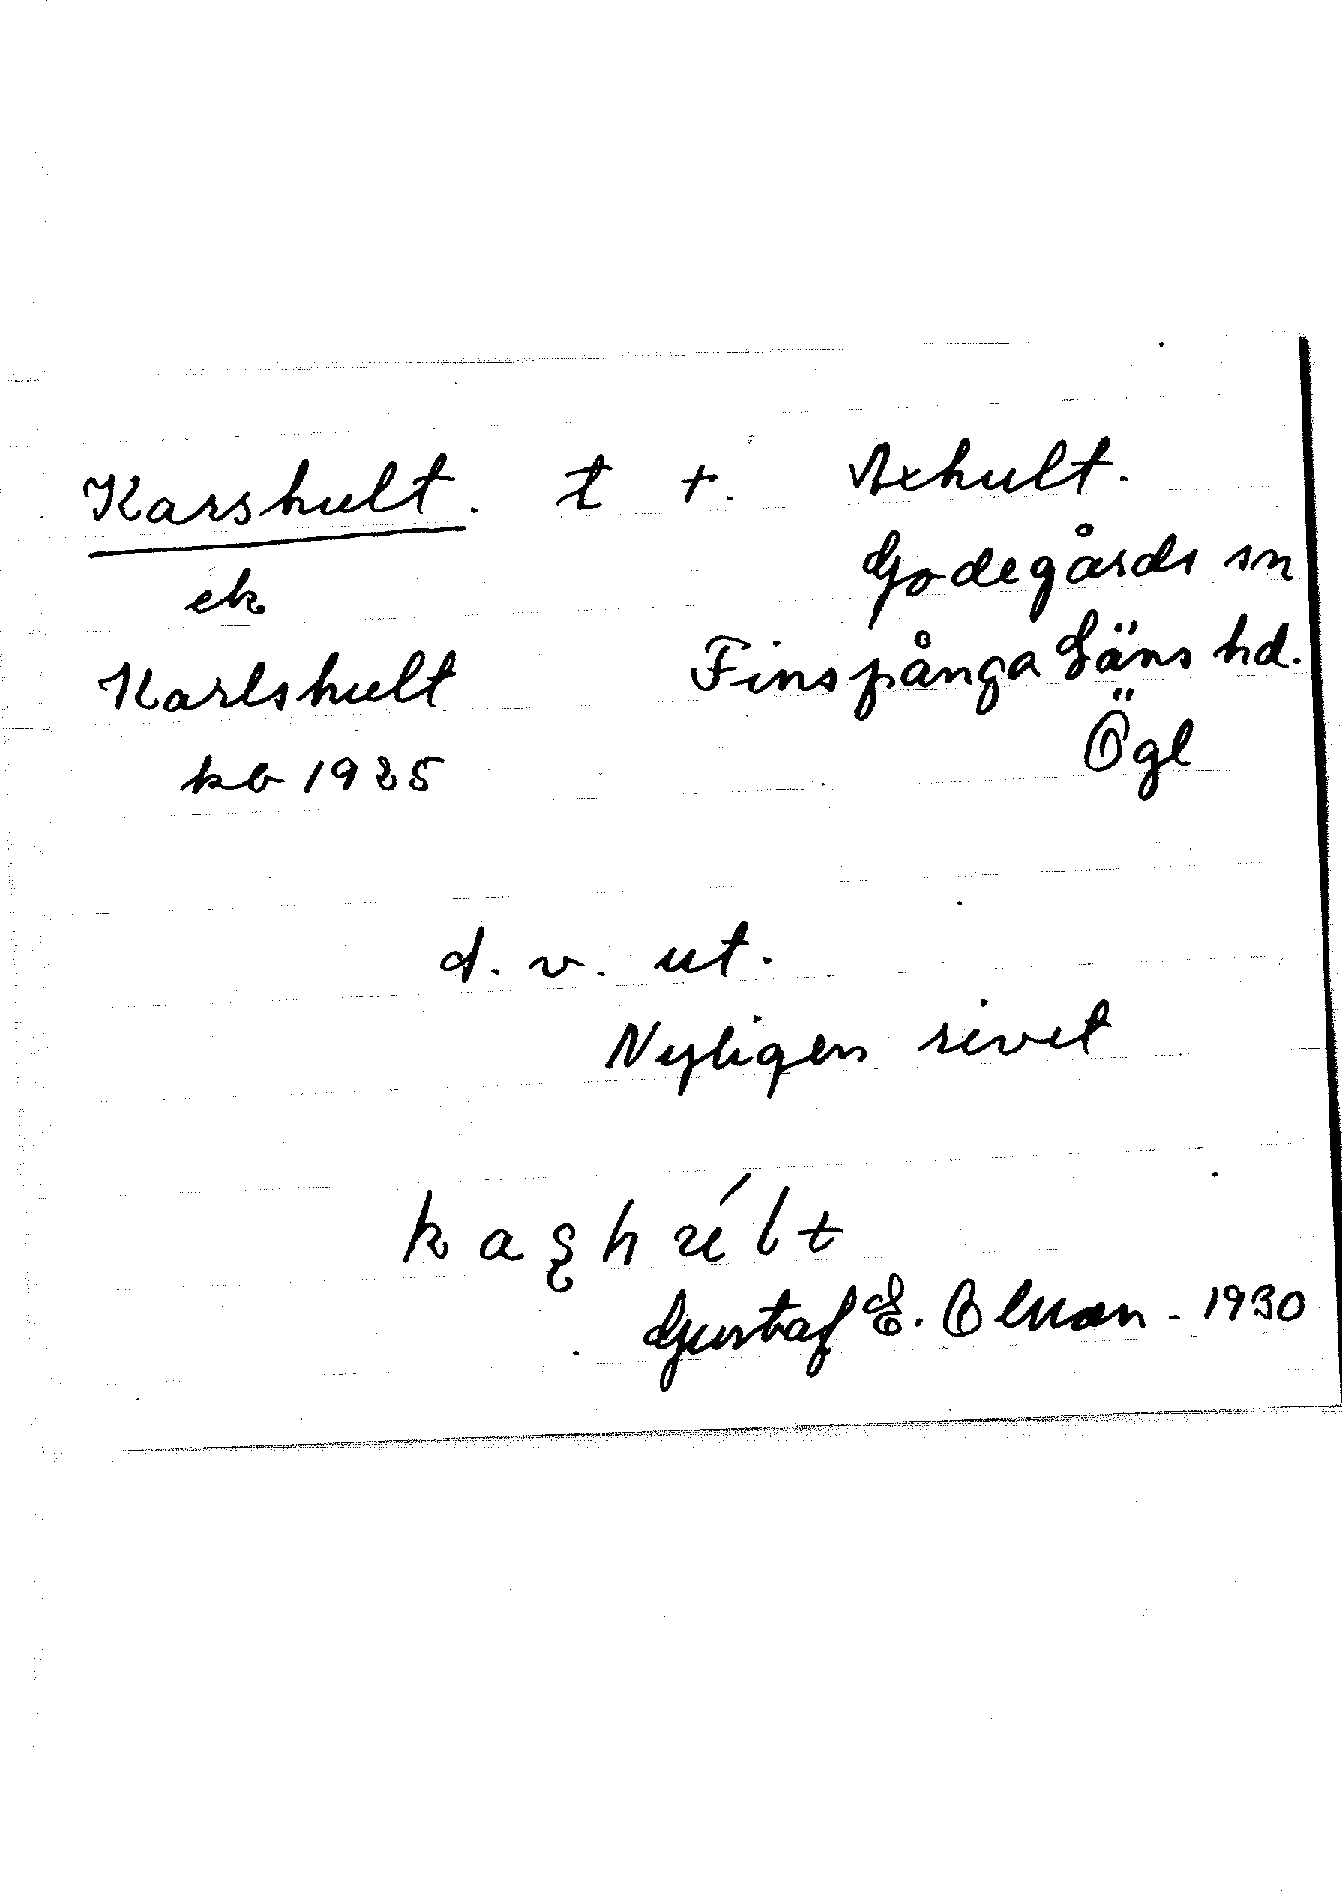 Karshult. t +. Axhult.
ek Godegårds sn
Karlshult Finspånga Läns hd.
kb 1925 Ögl
d. v. ut.
Nyligen rivet
Gustaf E. Olsson - 1930